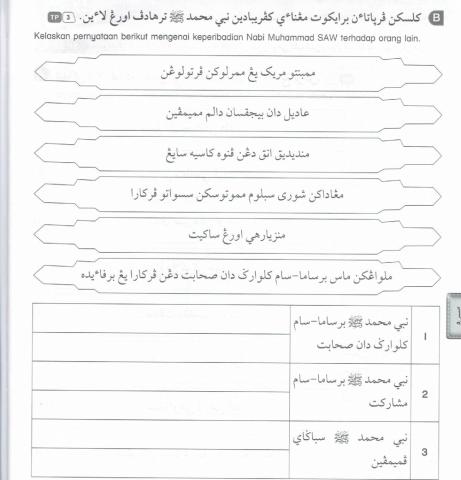 B كلسكن ڤرڽاتاءن برايكوت مڠناءي كڤريبادين نبي محمد ﷺ ترهادڤ اورڠ لاءين. 3 TP
Kelaskan pernyataan berikut mengenai keperibadian Nabi Muhammad SAW terhadap orang lain.
ممبنتو مريک يڠ ممرلوكن ڤرتولوڠن
عاديل دان بيجقسان دالم مميمڤين
منديديق انق دڠن ڤنوه كاسيه سايڠ
مڠاداكن شورى سبلوم مموتوسكن سسواتو ڤركارا
منزيارهي اورڠ ساكيت
ملواڠكن ماس برساما-سام كلوارݢ دان صحابت دڠن ڤركارا يڠ برفاءيده
1 نبي محمد ﷺ برساما-سام
كلوارݢ دان صحابت
2 نبي محمد ﷺ برساما-سام
مشاركت
3 نبي محمد ﷺ سباݢاي
ڤميمڤين